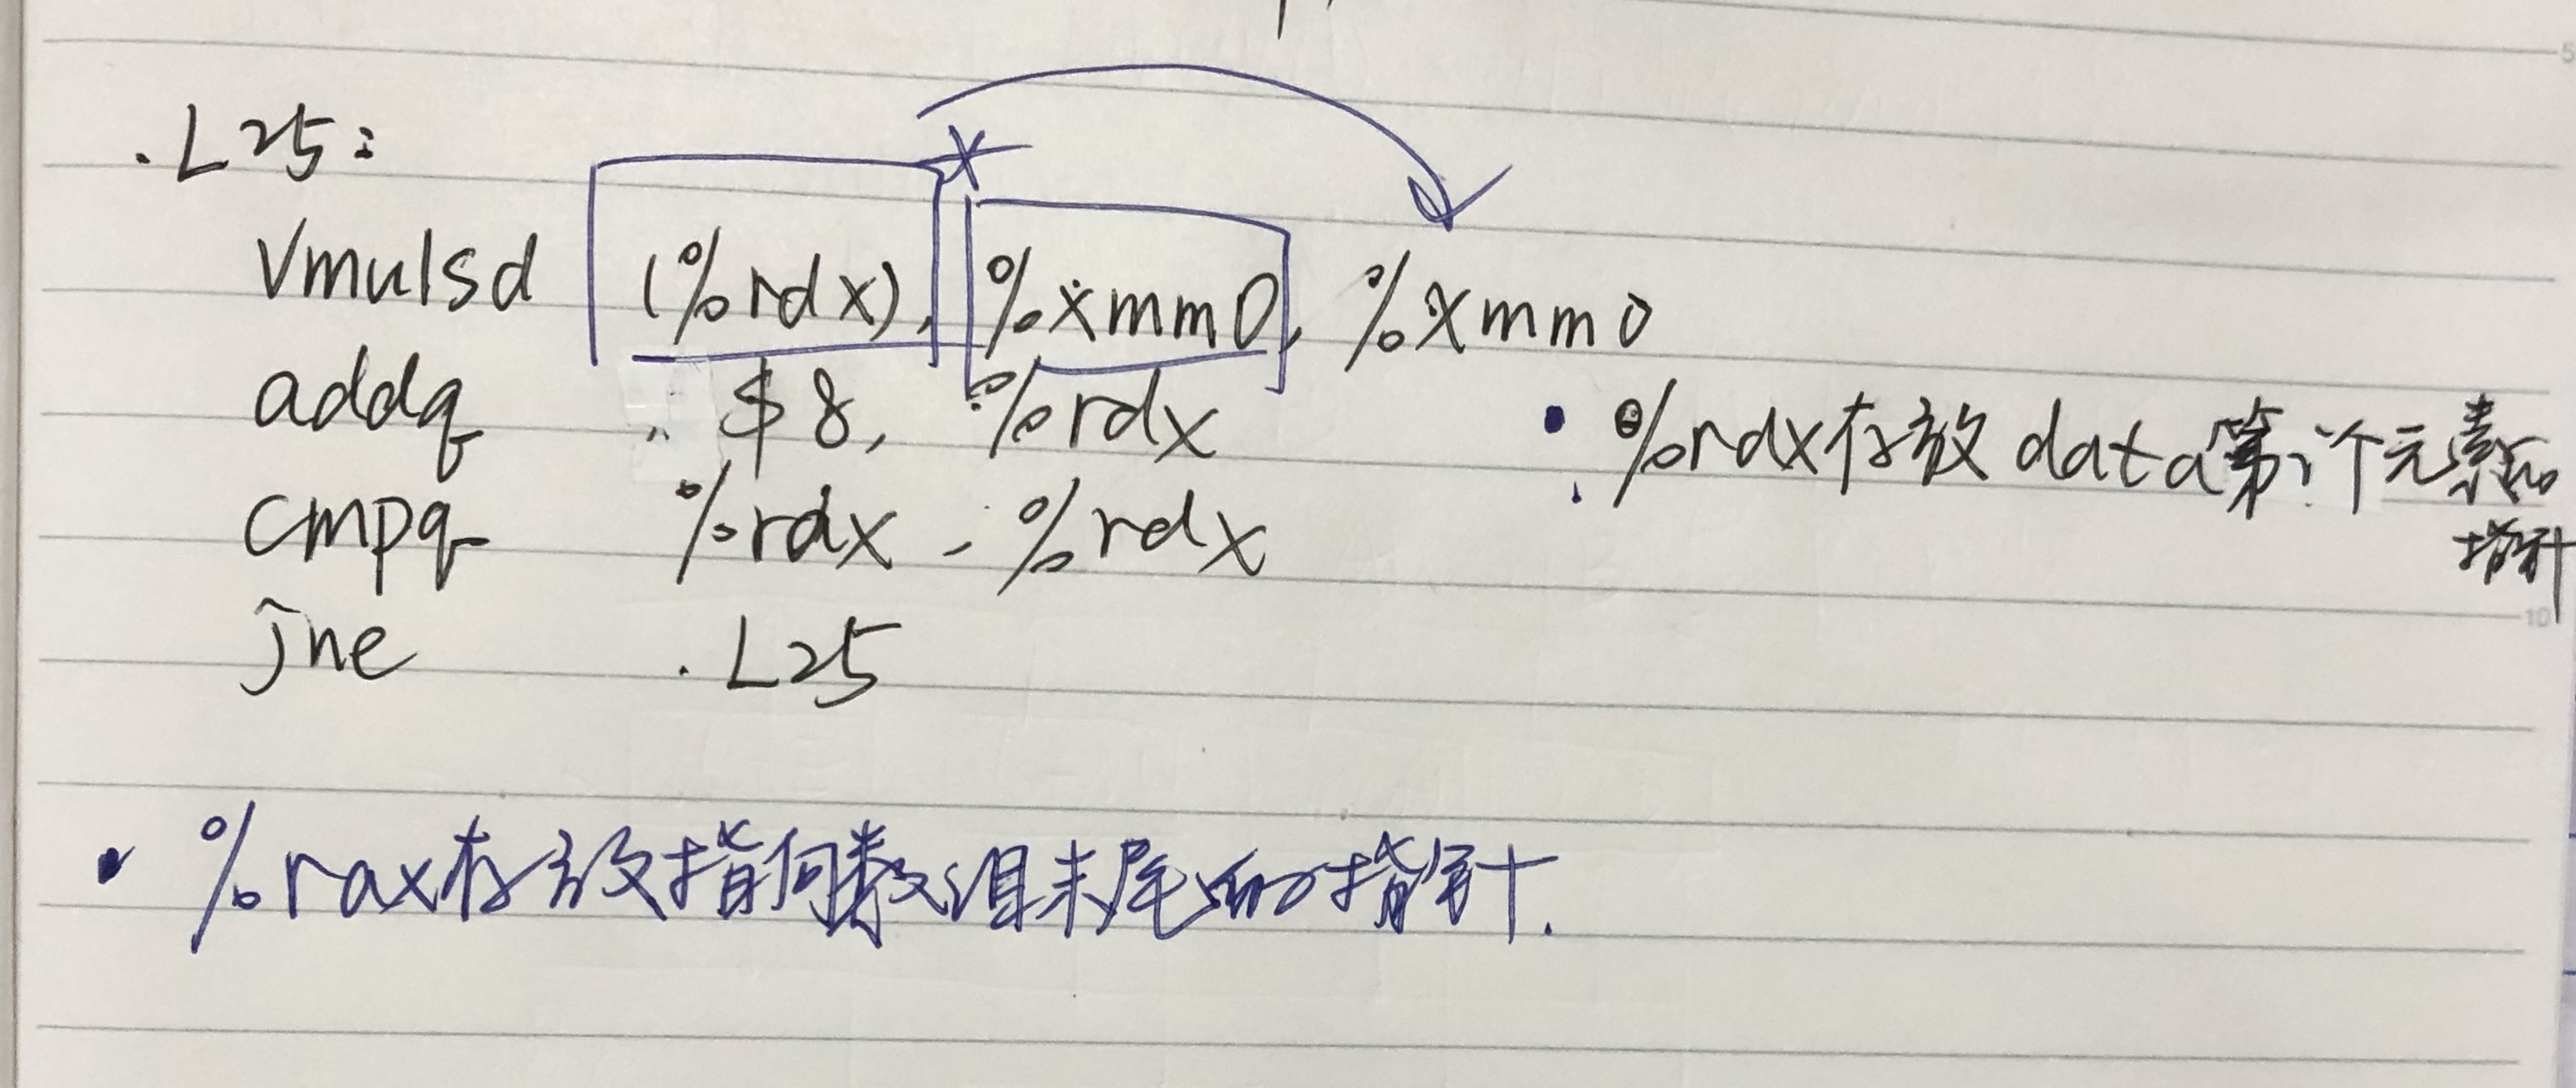 .L25:
vmulsd (%rdx), %xmm0, %xmm0
addq $8, %rdx
cmpq %rdx, %rdx
jne .L25
• %rdx存放data第i个元素的
指针
• %rax存放指向数组末尾的指针.